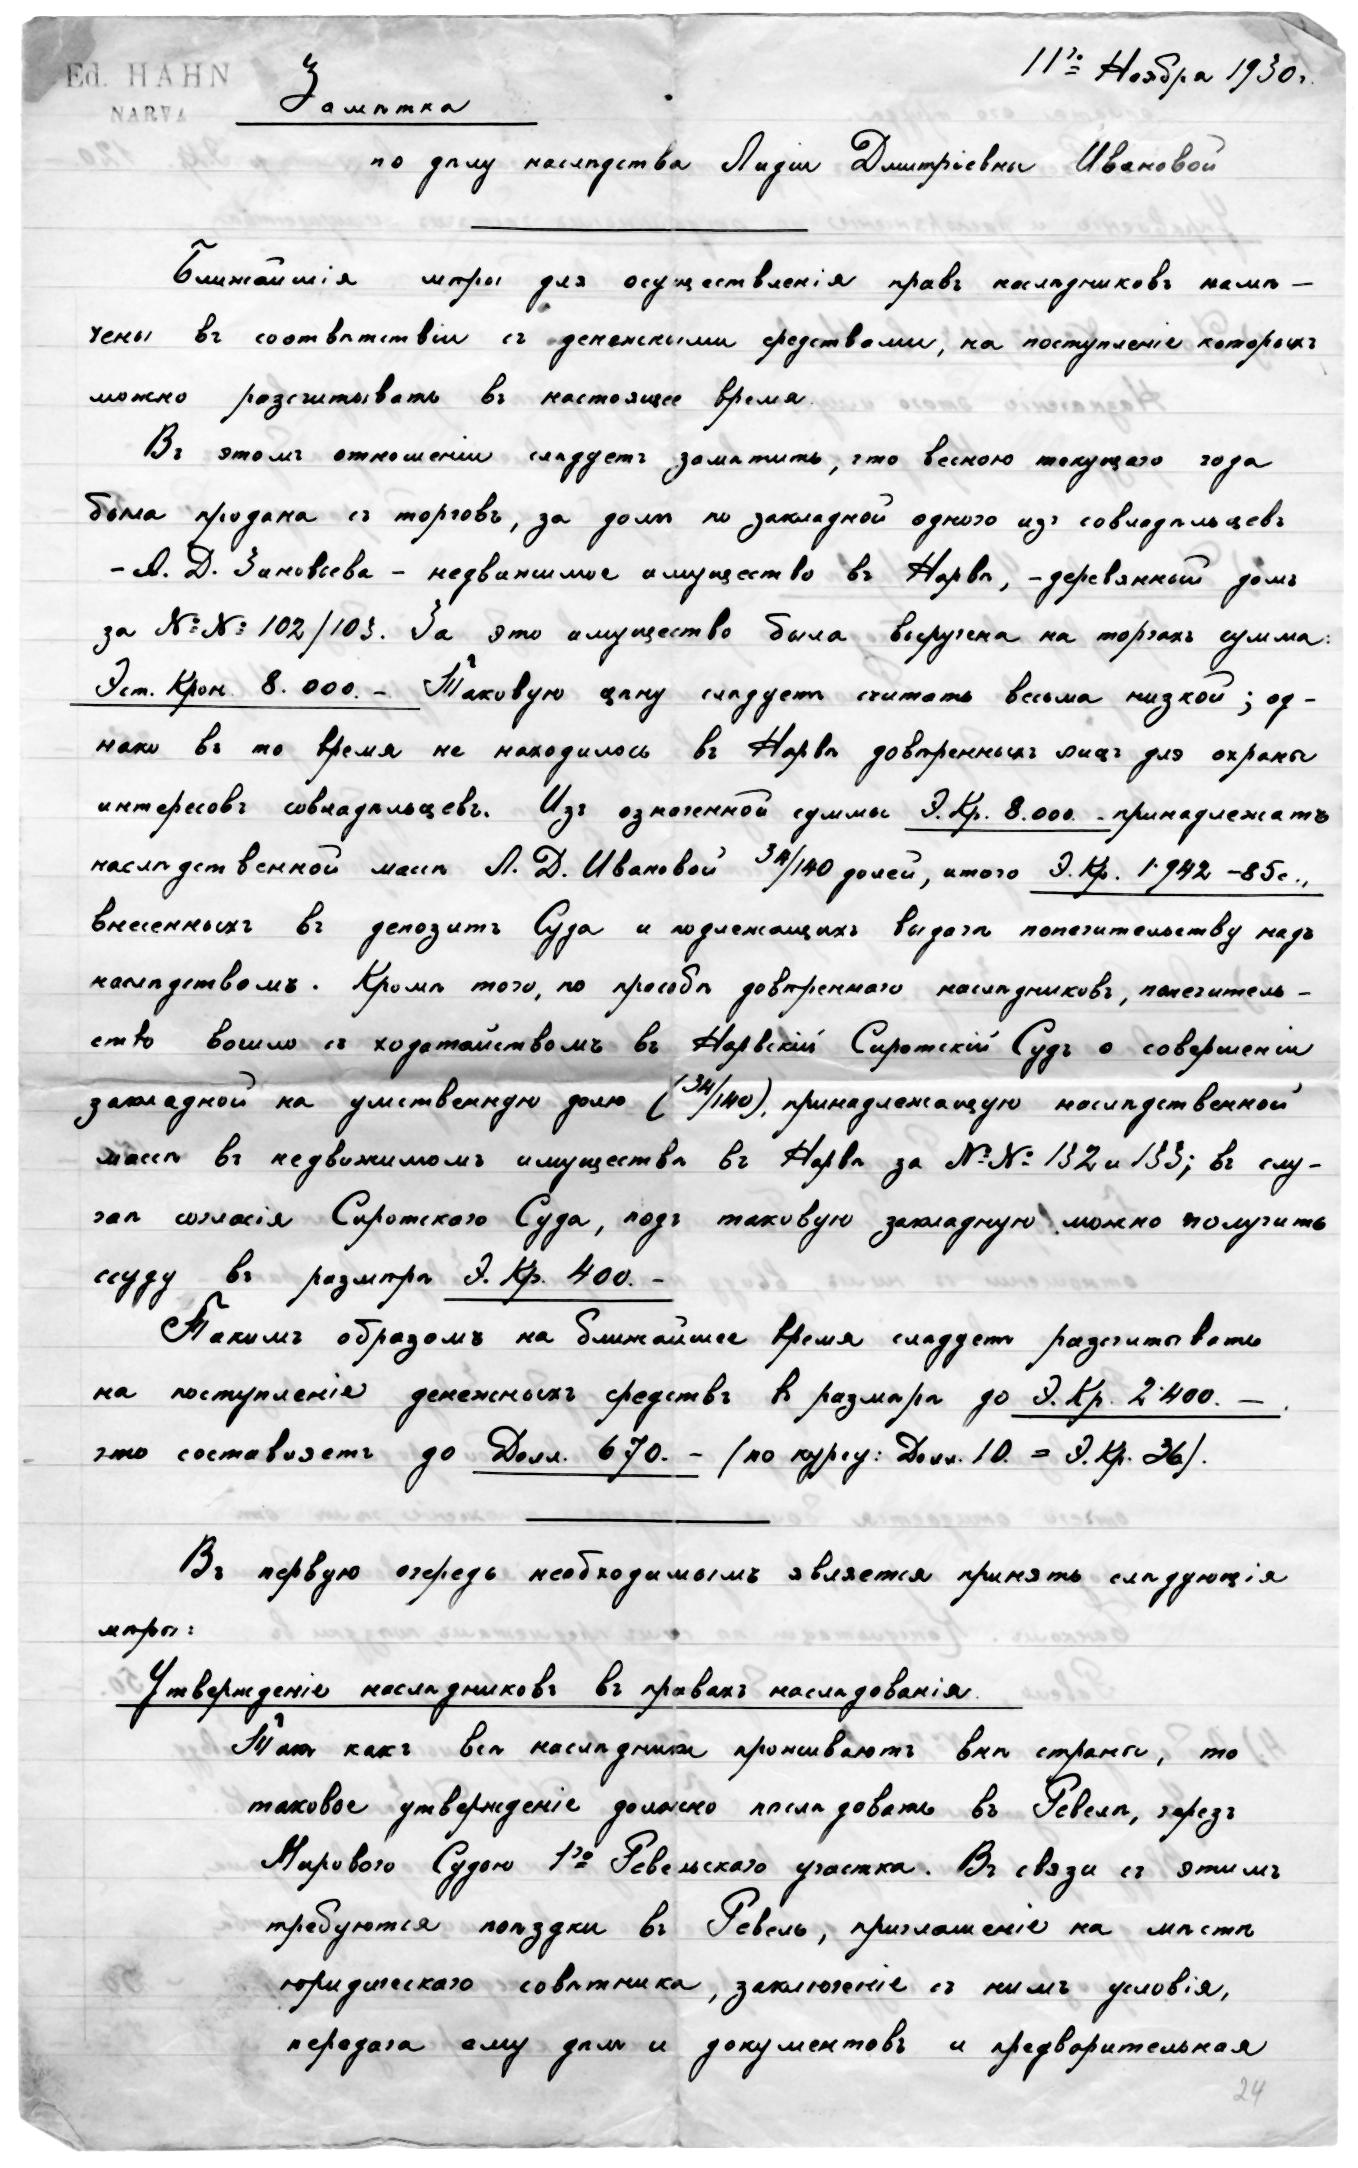 Ed. HAHN
NARVA
11го Ноября 1930г.
Замѣтка
по дѣлу наслѣдства Лидіи Дмитріевны Ивановой
Ближайшія мѣры для осуществленія правъ наслѣдниковъ намѣ-
чены въ соотвѣтствіи съ денежными средствами, на поступленіе которыхъ
можно разсчитывать въ настоящее время.
Въ этомъ отношеніи слѣдуетъ замѣтить, что весною текущаго года
была продана съ торговъ, за долги по закладной одного изъ совладѣльцевъ
- А. Д. Зиновьева - недвижимое имущество въ Нарвѣ, - деревянный домъ
за №№ 102/103. За это имущество была выручена на торгахъ сумма:
Эст. Крон. 8.000. - Таковую цѣну слѣдуетъ считать весьма низкой; од-
нако въ то время не находилось въ Нарвѣ довѣренныхъ лицъ для охраны
интересовъ совладѣльцевъ. Изъ означенной суммы Э. Кр. 8.000. - принадлежатъ
наслѣдственной массѣ Л. Д. Ивановой 34/140 долей, итого Э. Кр. 1.942 - 85с.,
внесенныхъ въ депозитъ Суда и подлежащихъ выдачѣ попечительству надъ
наслѣдствомъ. Кромѣ того, по просьбѣ довѣреннаго наслѣдниковъ, попечитель-
ство вошло съ ходатайствомъ въ Нарвскій Сиротскій Судъ о совершеніи
закладной на умственную долю (34/140), принадлежащую наслѣдственной
массѣ въ недвижимомъ имуществѣ въ Нарвѣ за №№ 132 и 133; въ слу-
чаѣ согласія Сиротскаго Суда, подъ таковую закладную можно получить
ссуду въ размѣрѣ Э. Кр. 400. -
Такимъ образомъ на ближайшее время слѣдуетъ разсчитывать
на поступленіе денежныхъ средствъ въ размѣрѣ до Э. Кр. 2.400. -
что составляетъ до Долл. 670. - (по курсу: Долл. 10. = Э. Кр. 36).
Въ первую очередь необходимымъ является принять слѣдующія
мѣры:
Утвержденіе наслѣдниковъ въ правахъ наслѣдованія.
Такъ какъ всѣ наслѣдники проживаютъ внѣ страны, то
таковое утвержденіе должно послѣдовать въ Ревелѣ, черезъ
Мирового Судью 1го Ревельскаго участка. Въ связи съ этимъ
требуются поѣздки въ Ревель, приглашеніе на мѣстѣ
юридическаго совѣтника, заключеніе съ нимъ условія,
передача ему дѣла и документовъ и предварительная
24